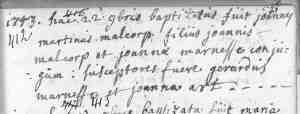 hac 22 9bris baptizatus fuit joannes
martinus malcorp filius joannis
malcorp et joanna marnesse conju
gum: susceptores fuere gerardus
marnesse et joanna art
baptizata fuit maria